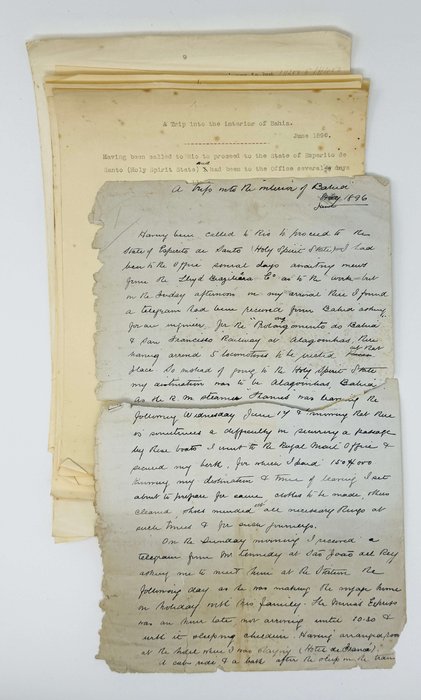 9
A Trip into the interior of Bahia.
June 1896.
Having been called to Rio to proceed to the State of Esparito de
Santo (Holy Spirit State) and I had been to the Office several days
A Trip into the interior of Bahia
June 1896
Having been called to Rio to proceed to the
State of Espirito de Santo (Holy Spirit State) I had
been to the Office several days awaiting news
from the Lloyd Brazileiro Co as to the work but
on the Sunday afternoon on my arrival there I found
a telegram had been received from Bahia asking
for an engineer for the "Prolongamento do Bahia
& San Francisco Railway at Alagoinhas, there
having arrived 5 locomotives to be erected at that
place. So instead of going to the Holy Spirit State
my destination was to be Alagoinhas, Bahia
as the R.M. steamer Thames was leaving the
following Wednesday June 17 & knowing that there
is sometimes a difficulty in securing a passage
by these boats I went to the Royal Mail Office &
secured my berth, for which I paid 150$000
knowing my destination & time of leaving I set
about to prepare for same clothes to be made, others
cleaned, shoes mended & all necessary things at
such times & for such journeys.
On the Sunday morning I received a
telegram from Mr Kennedy at Sao Joao del Rey
asking me to meet him at the Station the
following day as he was making the voyage home
on holiday with his family. The Minas Express
was an hour late not arriving until 10.30 &
with it sleeping children. Having arranged rooms
at the hotel where I was staying (Hotel de France)
a cab ride & a bath after the sleep in the train